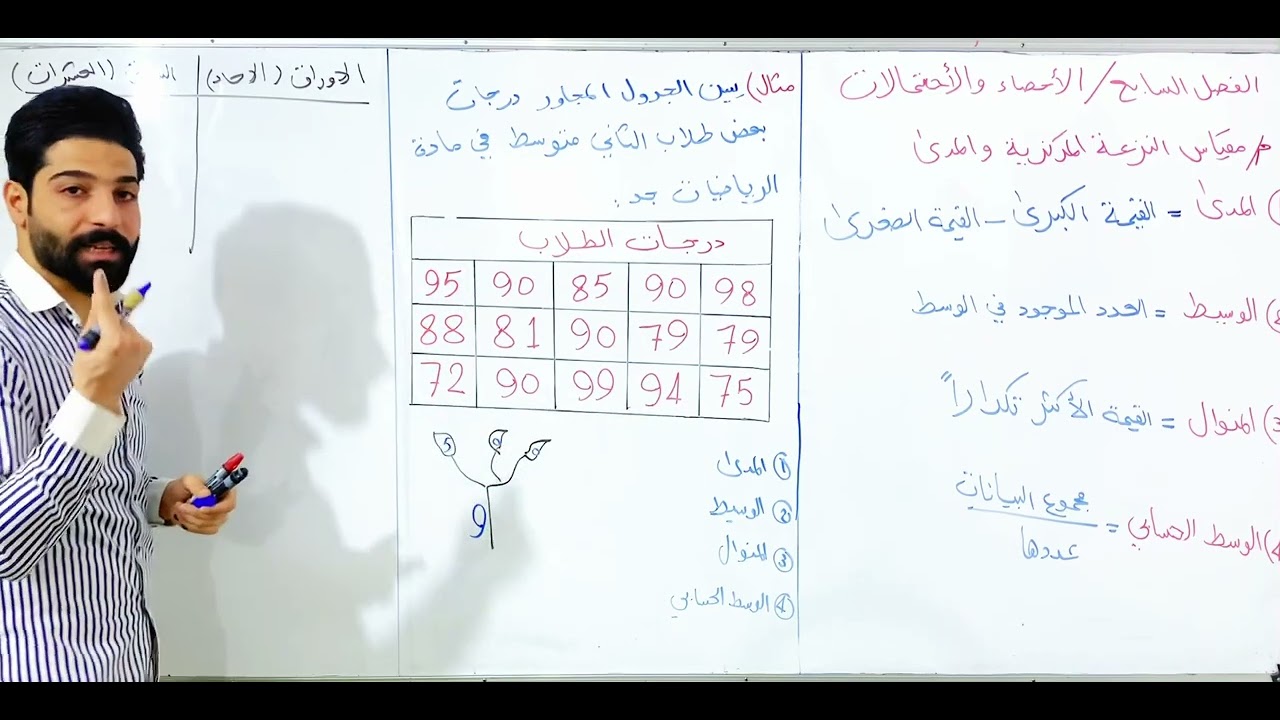 الفصل السابع / الأحصاء والأحتمالات
مقياس النزعة المركزية والمدى
المدى = القيمة الكبرى - القيمة الصغرى
الوسيط = العدد الموجود في الوسط
3) المنوال = القيمة الأكثر تكراراً
4) الوسط الحسابي = مجموع البيانات / عددها
مثال) يبين الجدول المجاور درجات
بعض طلاب الثاني متوسط في مادة
الرياضيات جد :
درجات الطلاب
95 90 85 90 98
88 81 90 79 79
72 90 99 94 75
5 0 0
9
① المدى
② الوسيط
③ المنوال
④ الوسط الحسابي
الاوراق (الاحاد)
(العشرات)